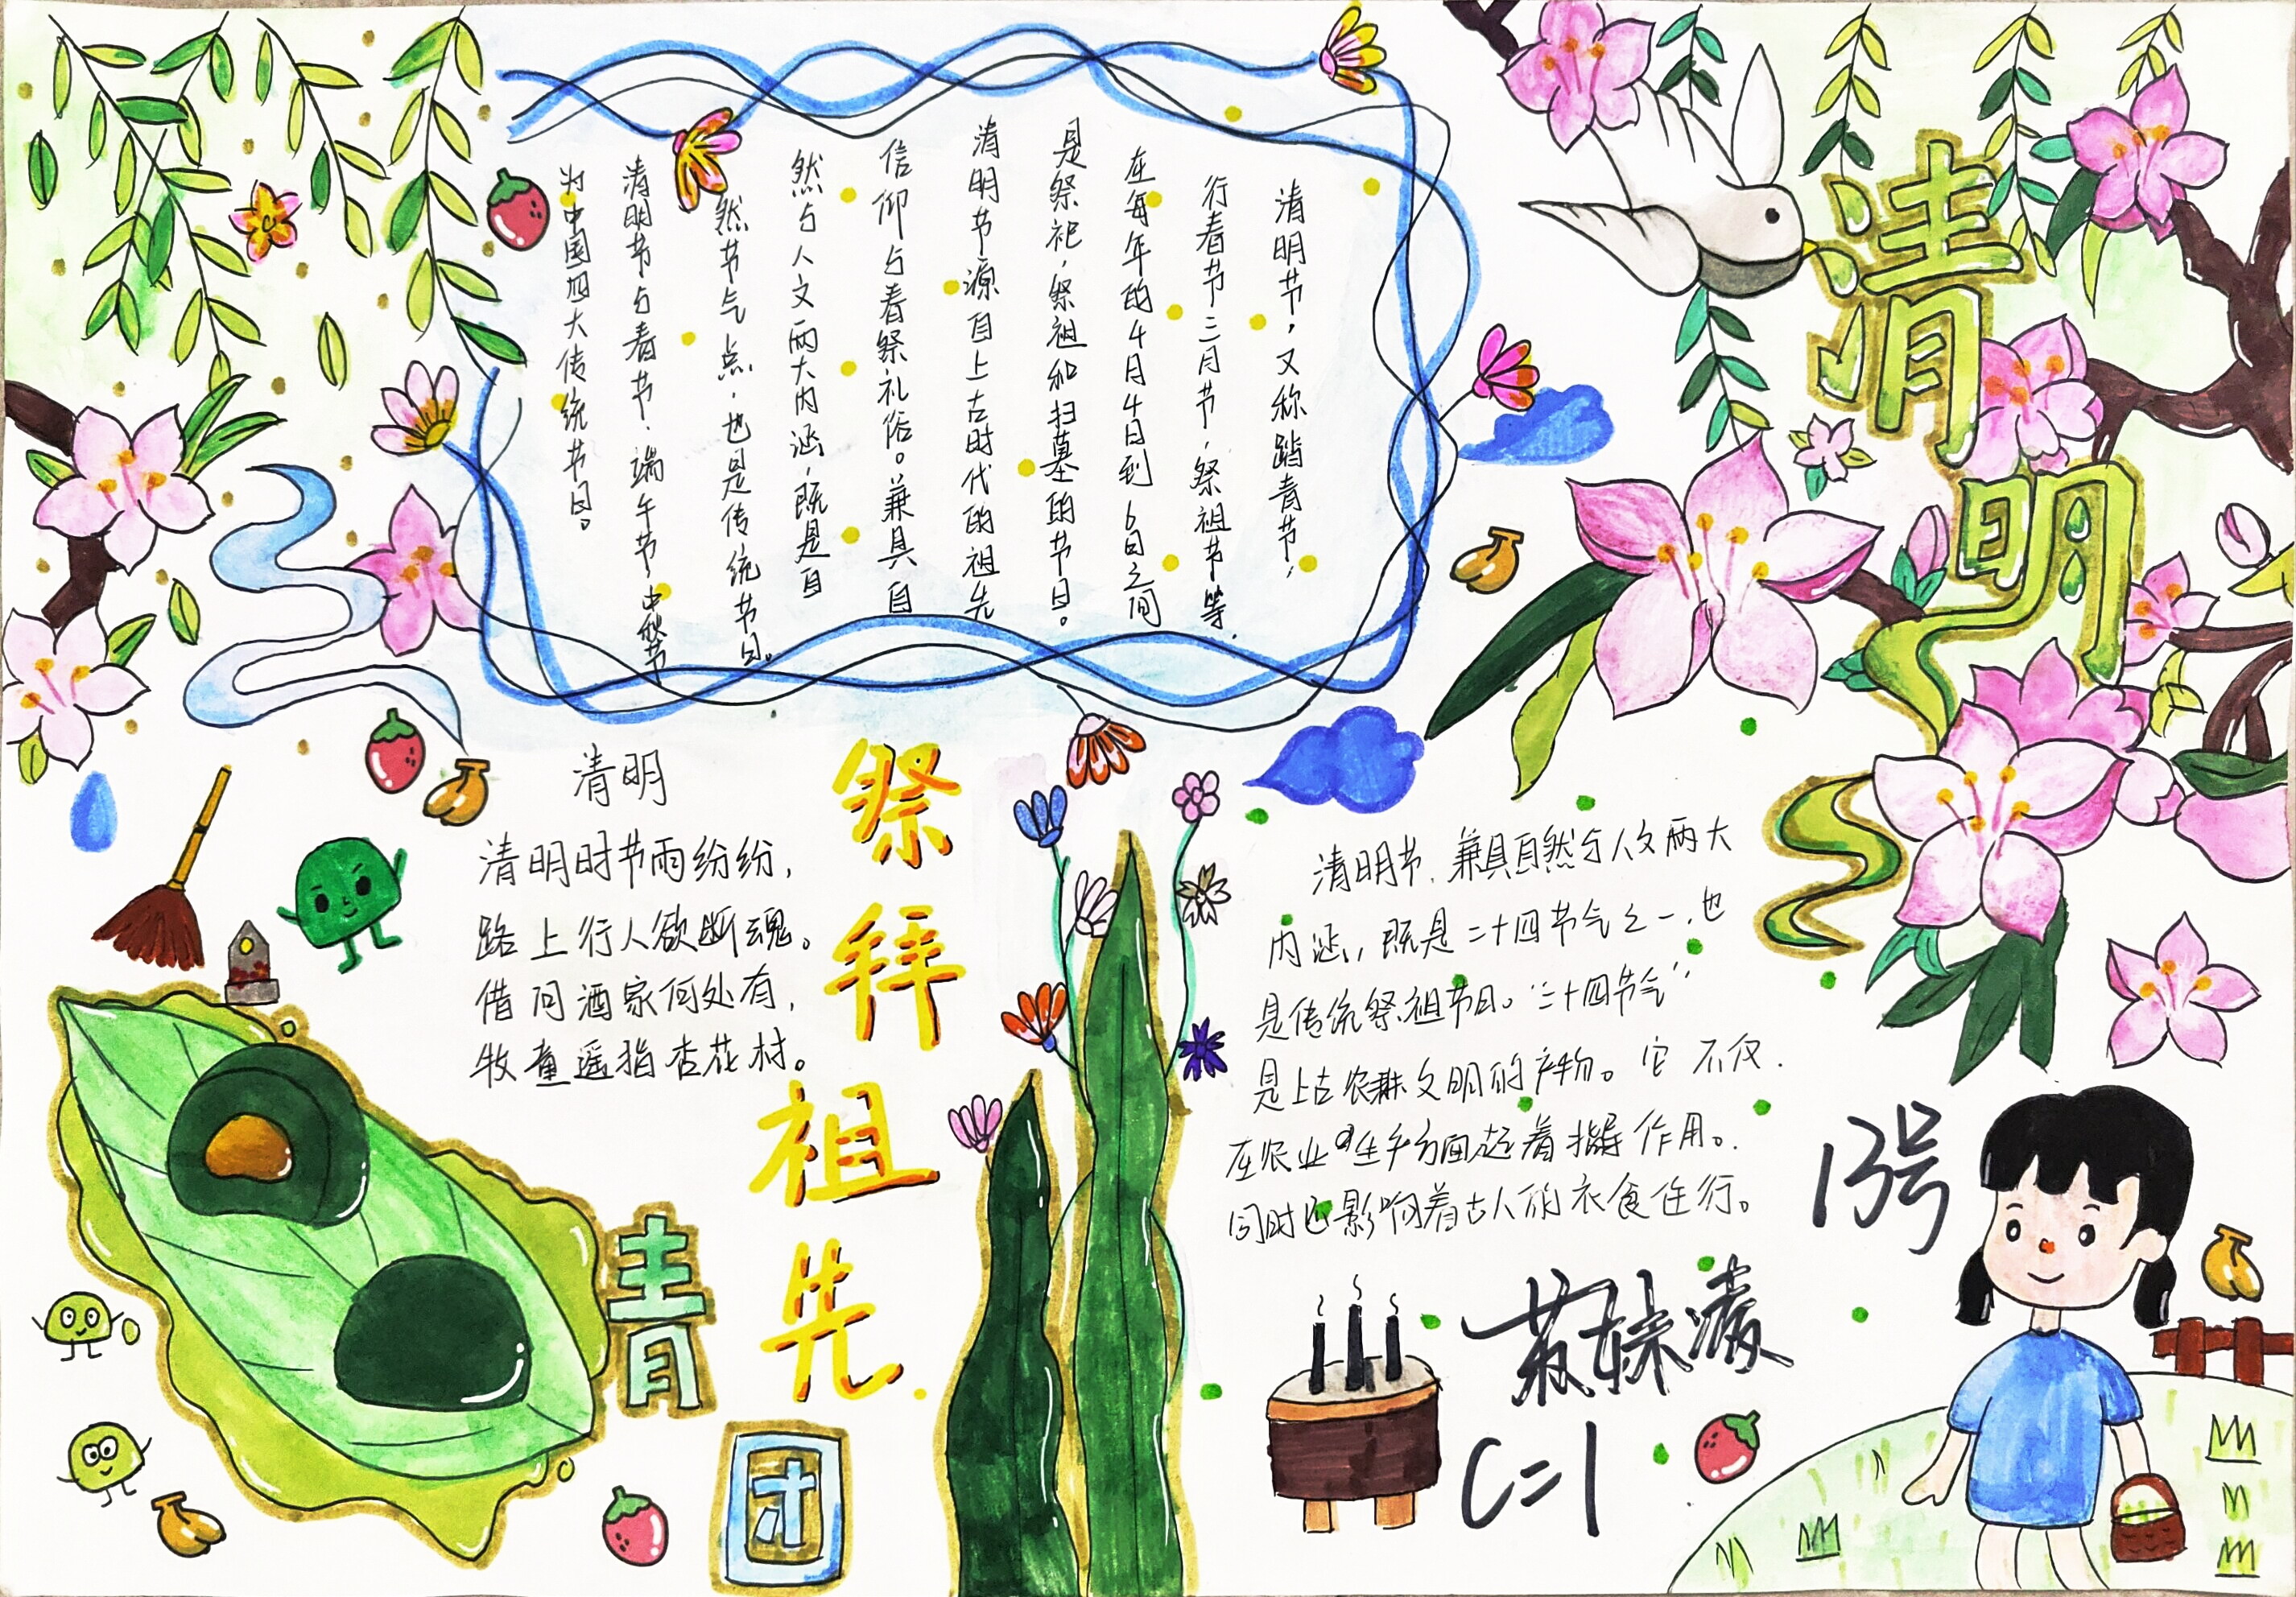 清明
清明节，又称踏青节，
行春节三月节，祭祖节等，
在每年的4月4日到6日之间
是祭祀，祭祖和扫墓的节日。
清明节源自上古时代的祖先
信仰与春祭礼俗。兼具自
然与人文两大内涵，既是自
然节气点，也是传统节日。
清明节与春节、端午节，中秋节
为中国四大传统节日。
清明
清明时节雨纷纷，
路上行人欲断魂。
借问酒家何处有，
牧童遥指杏花村。
祭拜祖先
青团
清明节，兼具自然与人文两大
内涵，既是二十四节气之一，也
是传统祭祖节日。“二十四节气”
是上古农耕文明的产物。它不仅
在农业生产方面起着指导作用。
同时还影响着古人的衣食住行。
13号